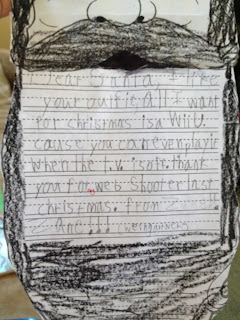 Dear Santa, I like
your outfie. All I want
for christmas is a Wii U.
cause you can even play it
when the t.v. isnt. thank
you for web shooter last
christmas. from
And